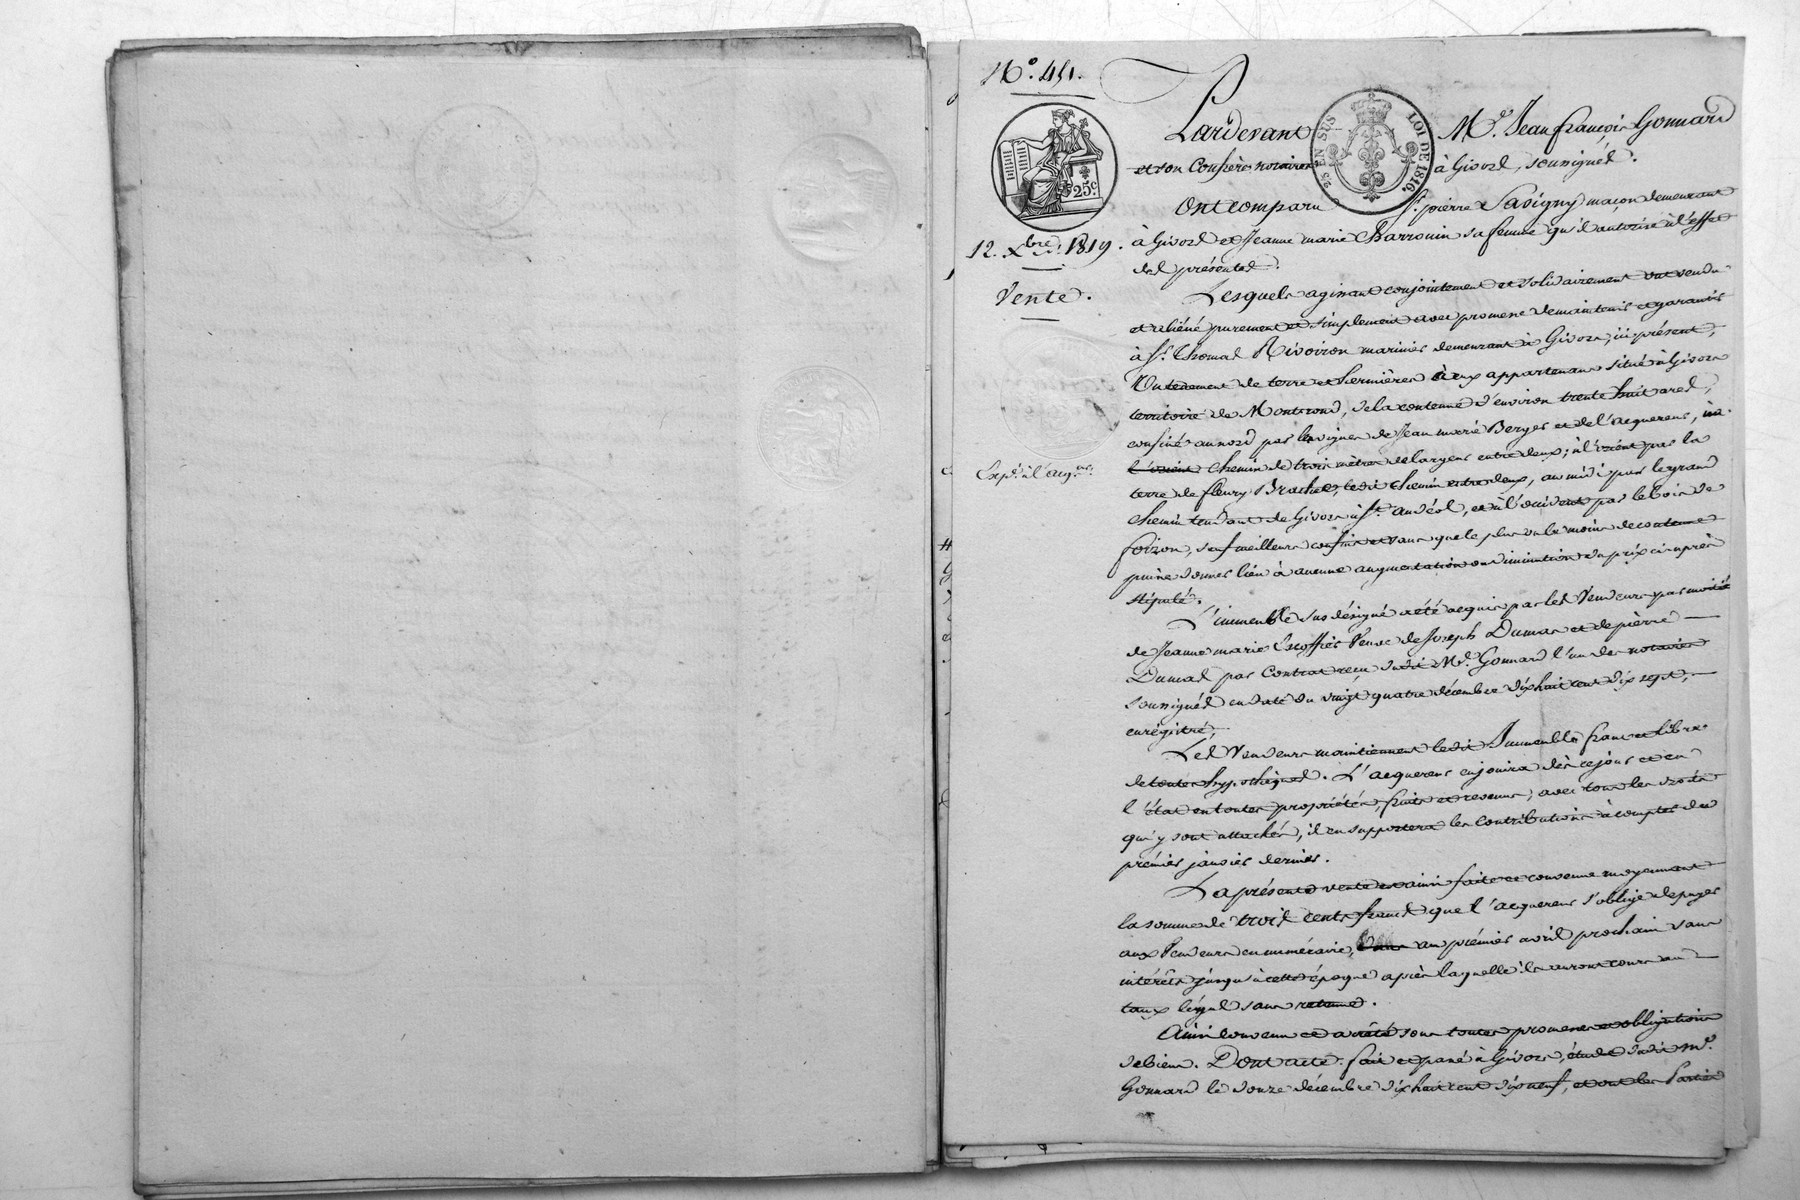 N.° 451.
Pardevant M.e Jean françois Gonnard
et son Confrère notaires à Givord, soussignés.
25 EN SUS LOI DE 1816.
25c.
Ont comparu Sr. pierre Savigny maçon demeurant
12. Xbre. 1819.
à Givord et Jeanne marie Charrouin sa femme qu'il autorise à l'effet
des présentes.
Vente.
Lesquels agissant conjointement et solidairement ont vendu
et aliéné purement et simplement avec promesse de maintenir et garantir
à Sr. Thomas Rivoiron marinier demeurant à Givors, ici présent,
Un tènement de terre et hermières à eux appartenant situé à Givors
territoire de Montrond, de la contenue d'environ trente huit ares,
confiné au nord par les vignes de Jean marie Berger et de l'acquereur,
chemin de trois mètres de largeur entre deux; à l'orient par la
Exp. à l'acq.eur
terre de fleury Brachet, ledit chemin entre deux, au midi par le grand
chemin tendant de Givors à St. andéol, et à l'occident par le bois de
foizon, sauf meilleurs confins et sans que le plus ou le moins de contenue
puisse donner lieu à aucune augmentation ou diminution du prix ci après
stipulé.
L'immeuble sus désigné a été acquis par les Vendeurs par moitié
de Jeanne marie Escoffier Veuve de Joseph Dumas et de pierre
Dumas par Contrat reçu dudit M.e Gonnard l'un des notaires
soussignés en date du vingt quatre décembre dix huit cent dix sept,
enrégistré,
Les Vendeurs maintiennent ledit Immeuble franc et libre
de toutes hypothèques. L'acquereur en jouira dès ce jour et en
l'état en toutes propriétés, fruits et revenus, avec tous les droits
qui y sont attachés, il en supportera les Contributions à compter du
prémier janvier dernier.
La présente vente est ainsi faite et convenue moyennant
la somme de trois cents francs que l'acquereur s'oblige de payer
aux Vendeurs en numéraire, au prémier avril prochain sans
intérêts jusqu'à cette époque après laquelle ils auront cours au
taux légal sans retenue.
Ainsi convenu et arrêté sous toutes promesses et obligations
de biens. Dont acte. fait et passé à Givors, étude dudit M.e
Gonnard le douze décembre dix huit cent dix neuf, et ont les Parties